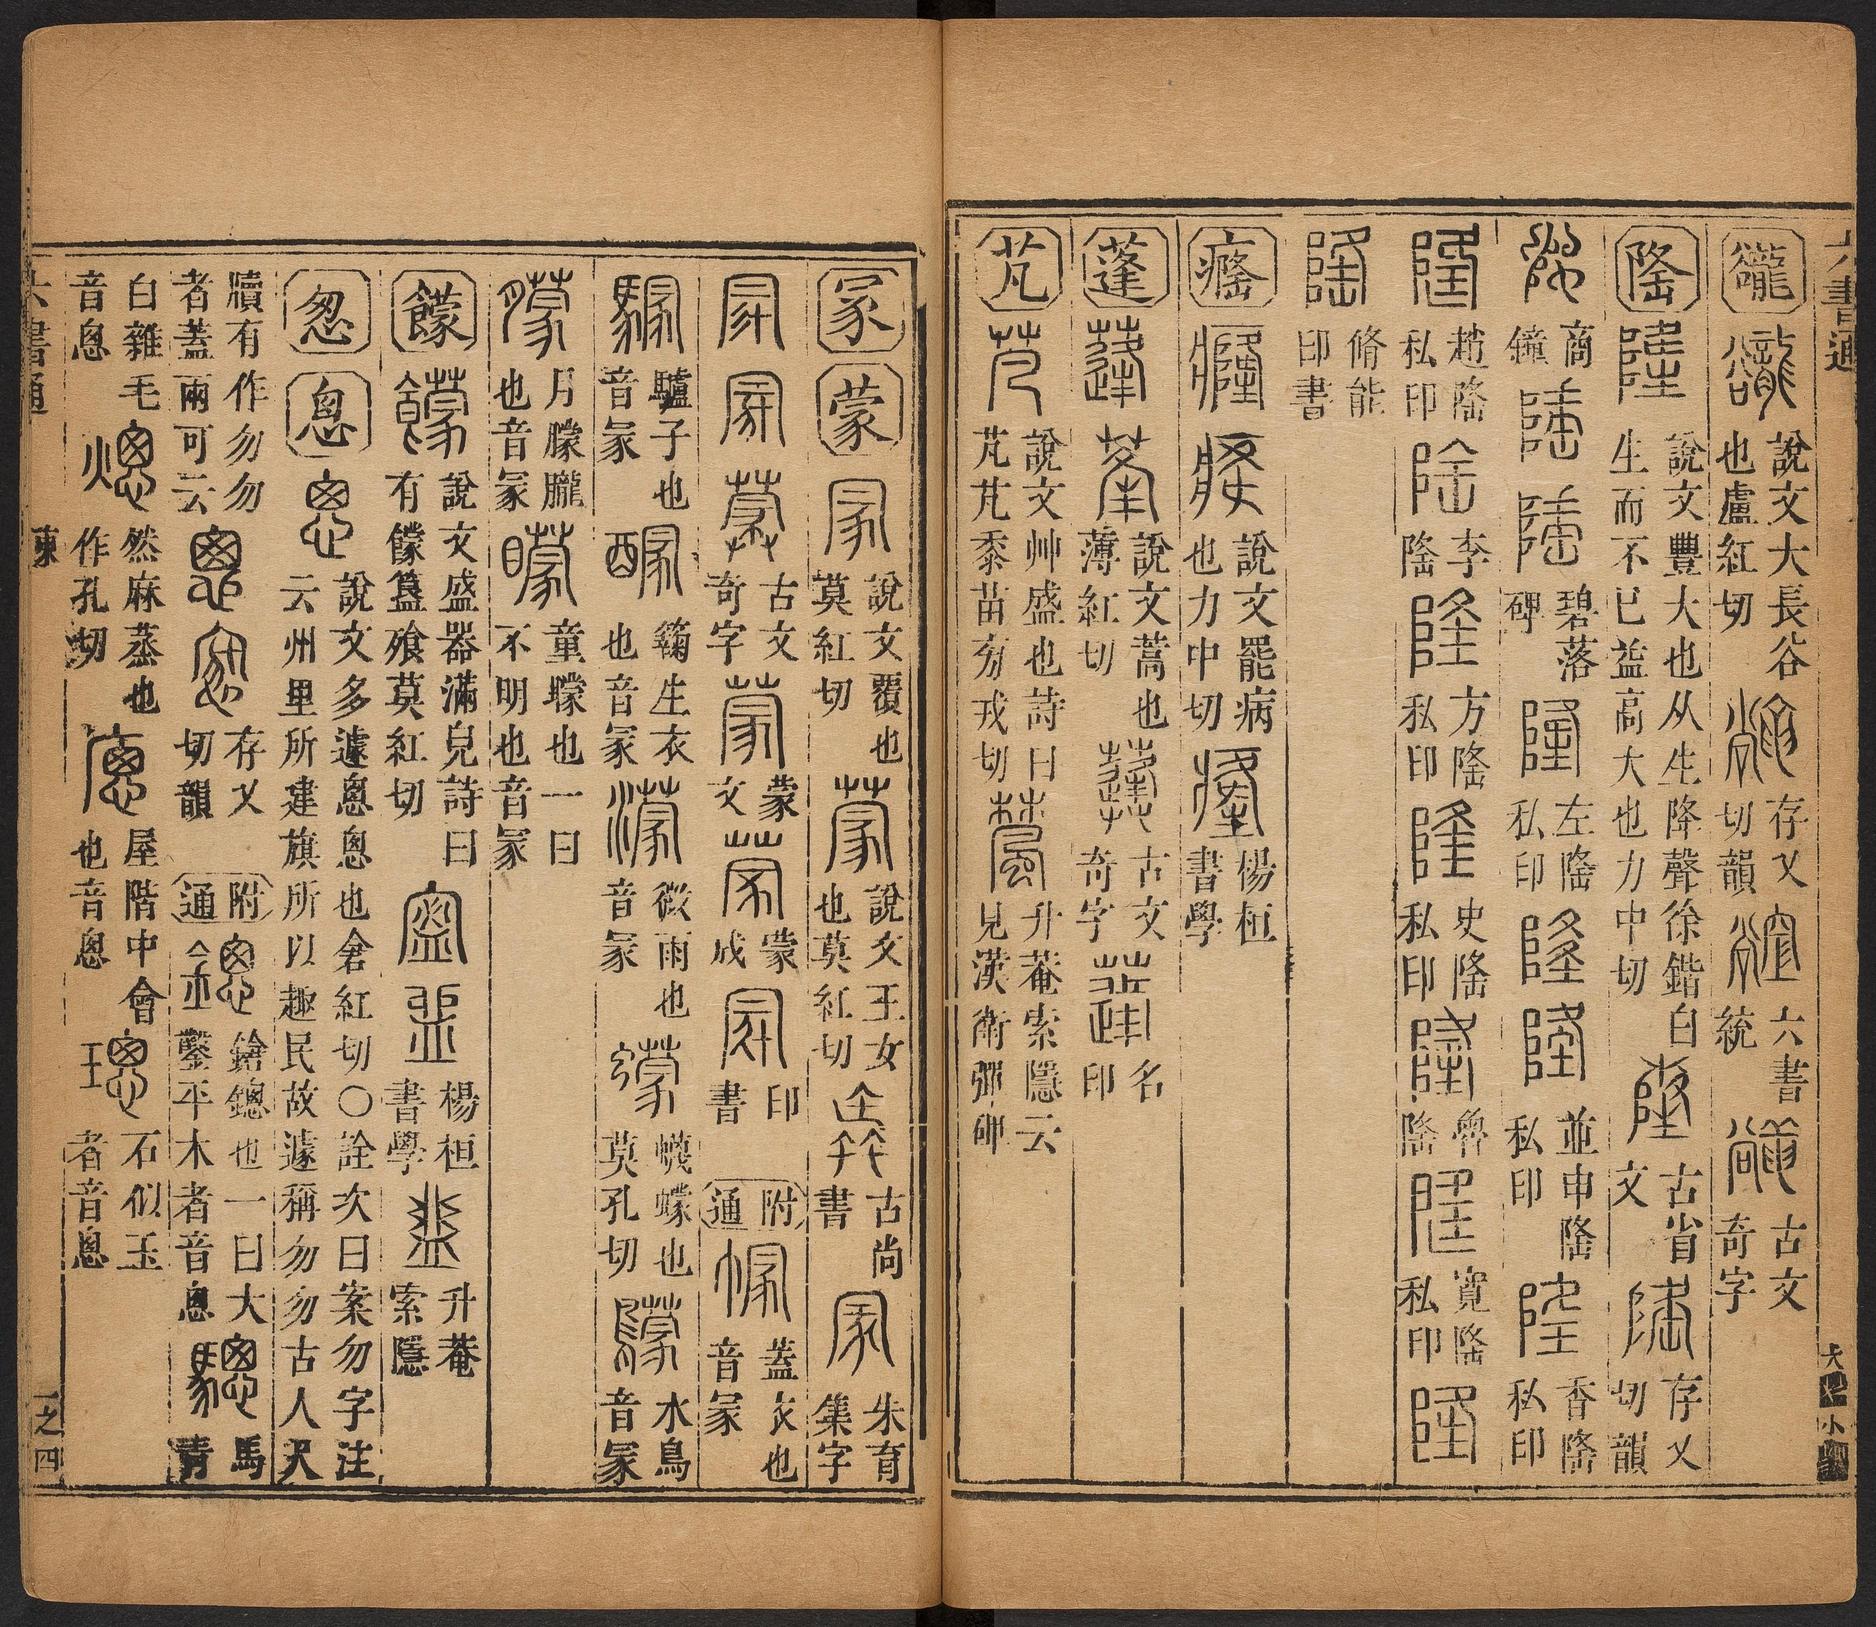 六書通
豅 說文大長谷也盧紅切 存乂切韻 六書統 古文奇字
隆 說文豐大也从生降聲徐鍇曰生而不已益高大也力中切 古文省 存乂切韻
商鐘 碧落碑 左隆私印 並申隆私印 香隆私印
趙隆私印 李隆 方隆私印 史隆私印 隆 寬隆私印
脩能印書
癃 說文罷病也力中切 楊桓書學
蓬 說文蒿也薄紅切 古文奇字 名印
芃 說文艸盛也詩曰芃芃黍苗房戎切 升菴索隱云見漢衛彈碑
冡 蒙 說文覆也莫紅切 說文王女也莫紅切 古尚書 朱育集字
古文奇字 蒙文 蒙成 印書 附通 蓋衣也音冡
驢子也音冡 籟生衣也音冡 微雨也音冡 蠛蠓也莫孔切 水鳥音冡
月朦朧也音冡 童矇也一曰不明也音冡
饛 說文盛器滿皃詩曰有饛簋飱莫紅切 楊桓書學 升菴索隱
怱 悤 說文多遽悤悤也倉紅切○詮次曰案勿字注云州里所建旗所以趣民故遽稱勿勿古人尺
牘有作勿勿者蓋兩可云 存乂切韻 附通 鎗鏓也一曰大鑿平木者音悤 馬青
白雜毛音悤 然麻蒸也作孔切 屋階中會也音悤 石似玉者音悤
六書通
東
一之四